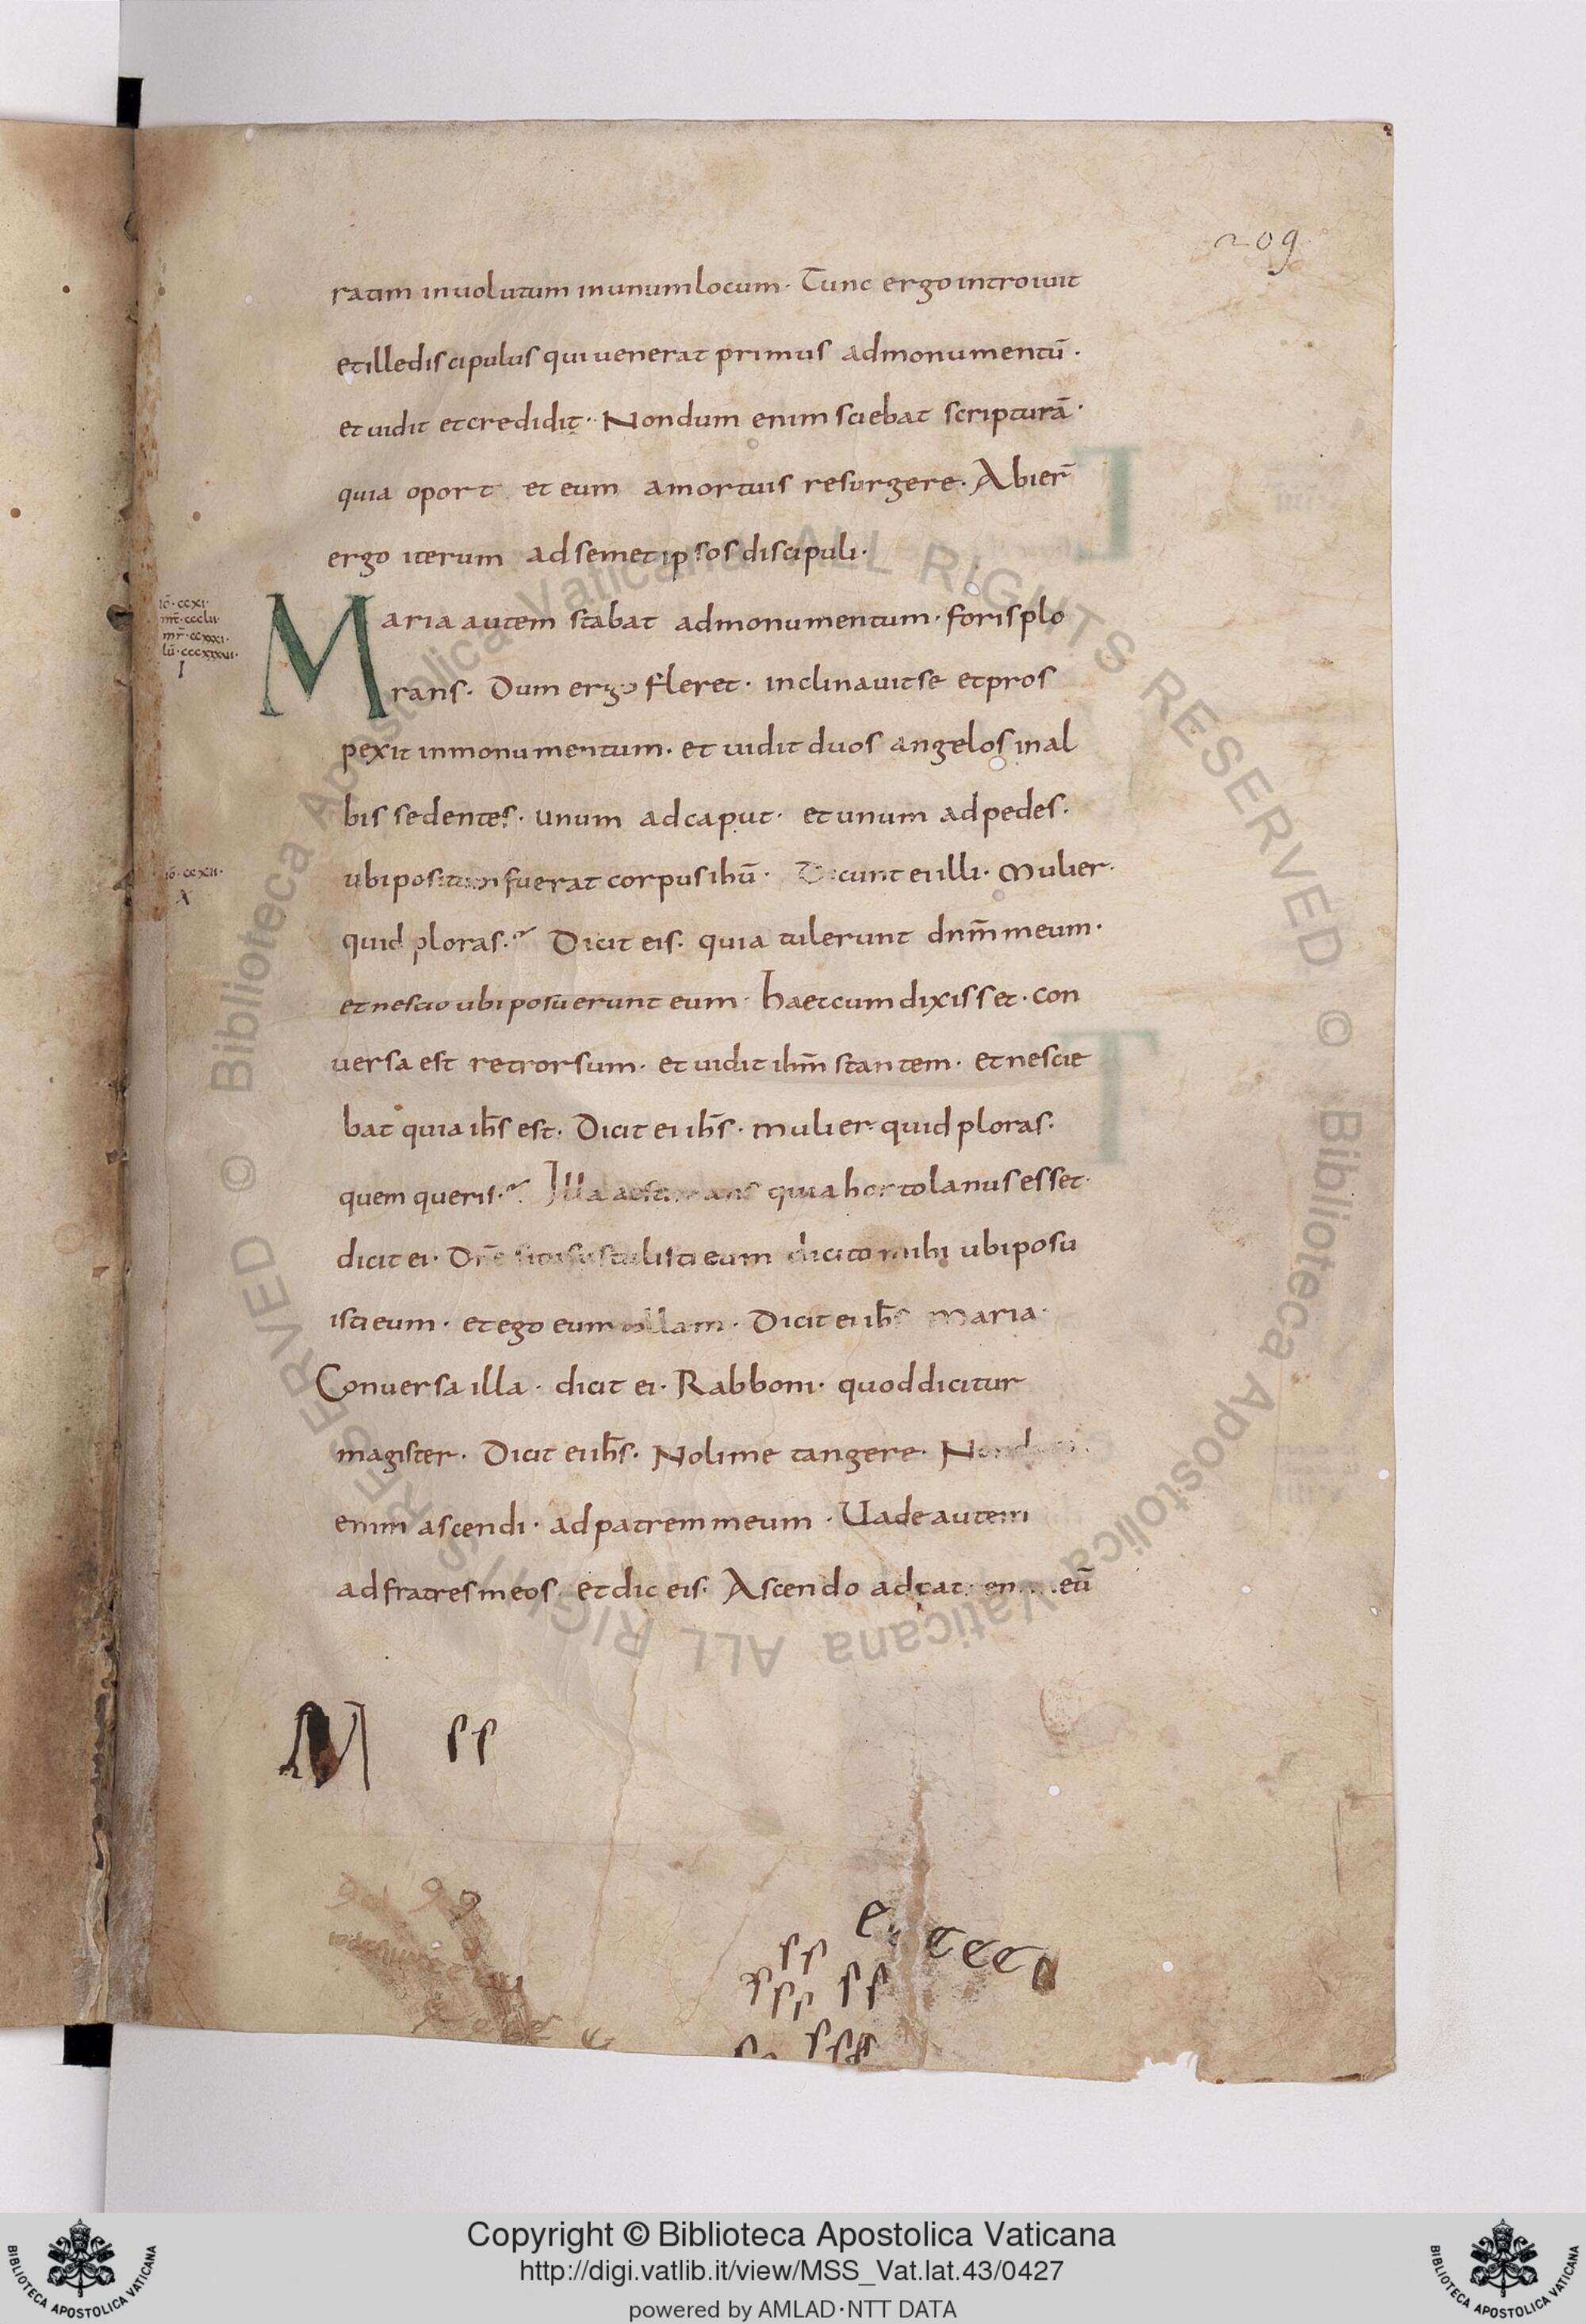 209
ratim inuolutum inunumlocum · Tunc ergointroiuit
etillediscipulus quiuenerat primus admonumentū ·
et uidit etcredidit · Nondum enim sciebat scripturā ·
quia oport et eum amortuis resurgere · Abier̄
ergo iterum adsemetipsos discipuli ·
iō · ccxi ·
mt̄ · ccclii ·
mr̄ · ccxxxi ·
lū · cccxxxvi ·
I
Maria autem stabat admonumentum · forisplo
rans · Dum ergo fleret · inclinauitse etpros
pexit inmonumentum · et uidit duos angelos inal
bis sedentes · unum adcaput · etunum adpedes ·
iō · ccxii ·
X
ubipositum fuerat corpusihū · Dicunt eiilli · Mulier ·
quid ploras · Dicit eis · quia tulerunt dnm̄meum ·
etnescio ubiposūerunt eum · haetcumdixisset · con
uersa est retrorsum · et uidit ihm̄ stantem · etnescie
bat quia ihs̄ est · Dicit ei ihs̄ · mulier quid ploras ·
quem queris · Illa quia hortolanus esset ·
dicit ei · Dn̄e situsustulisti eum dicito mihi ubiposu
isti eum · etego eum tollam · Dicit ei ihs̄ Maria ·
Conuersa illa · dicit ei · Rabboni · quoddicitur
magister · Dicit eiihs̄ · Nolime tangere · Nondum
enim ascendi · adpatremmeum · Uade autem
adfratresmeos etdic eis · Ascendo ad eū
M ss
e
e e e
ss
ss
Copyright © Biblioteca Apostolica Vaticana
http://digi.vatlib.it/view/MSS_Vat.lat.43/0427
powered by AMLAD·NTT DATA
BIBLIOTECA APOSTOLICA VATICANA
BIBLIOTECA APOSTOLICA VATICANA
© Biblioteca Apostolica Vaticana ALL RIGHTS RESERVED
© Biblioteca Apostolica Vaticana ALL RIGHTS RESERVED